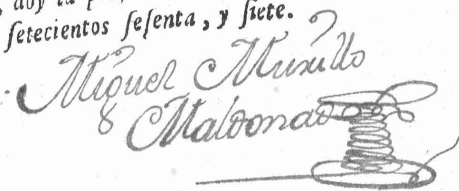 doy la
ſetecientos ſeſenta, y ſiete.
Miguel Murillo
Maldonado